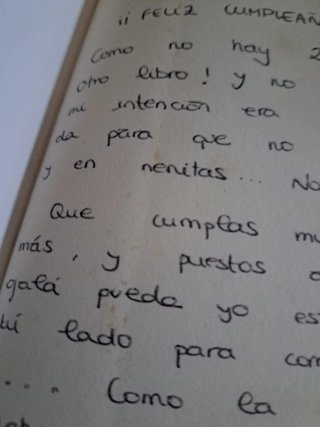 ¡¡ FELIZ CUMPLEAÑ
Como no hay 2
otro libro! y no
mi intención era
da para que no
y en nenitas... No
Que cumplas mu
más, y puestos a
gala pueda yo es
tú lado para com
... Como la